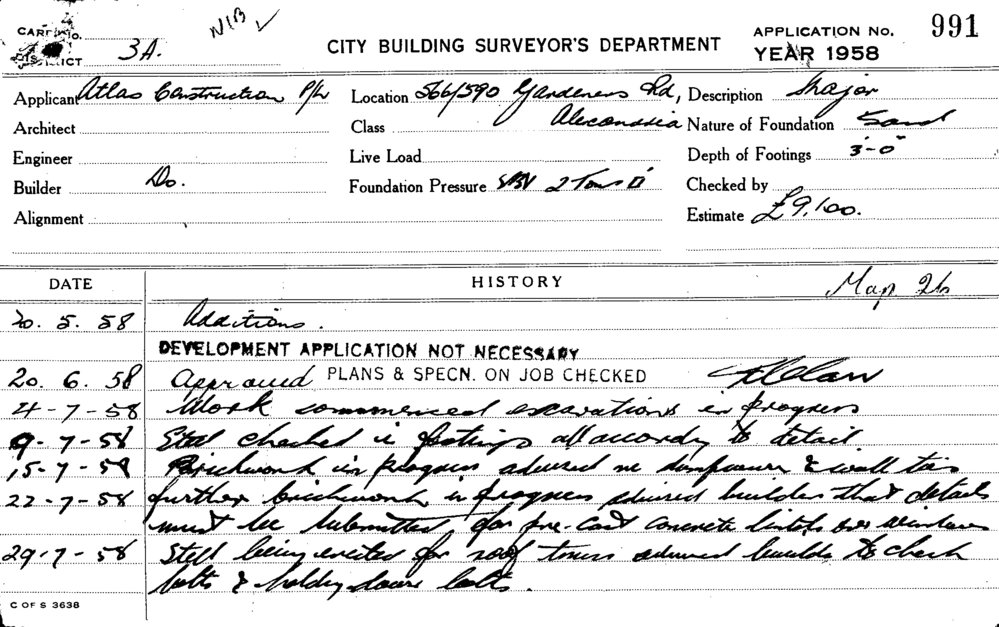 CARD No.
DISTRICT 3A.
N13 ✓
CITY BUILDING SURVEYOR'S DEPARTMENT
APPLICATION No. 991
YEAR 1958
Applicant Atlas Construction P/L
Location 566/590 Gardeners Rd, Alexandria
Description
Architect
Class
Nature of Foundation Sand
Engineer
Live Load
Depth of Footings 3'-0"
Builder Do.
Foundation Pressure 2 Tons □'
Checked by
Alignment
Estimate £9,100.
DATE HISTORY Map 26
20. 5. 58 Additions.
DEVELOPMENT APPLICATION NOT NECESSARY
20. 6. 58 Approved PLANS & SPECN. ON JOB CHECKED
4-7-58 Work commenced excavations in progress
9-7-58 Steel checked in footings all accordg to detail
15-7-58 Brickwork in progress advised re dampcourse & wall ties
22-7-58 further brickwork in progress advised builder that details
must be submitted for pre-cast concrete lintels over windows
29-7-58 Steel being erected for roof truss advised builder to check
bolts & holding down bolts.
C OF S 3638